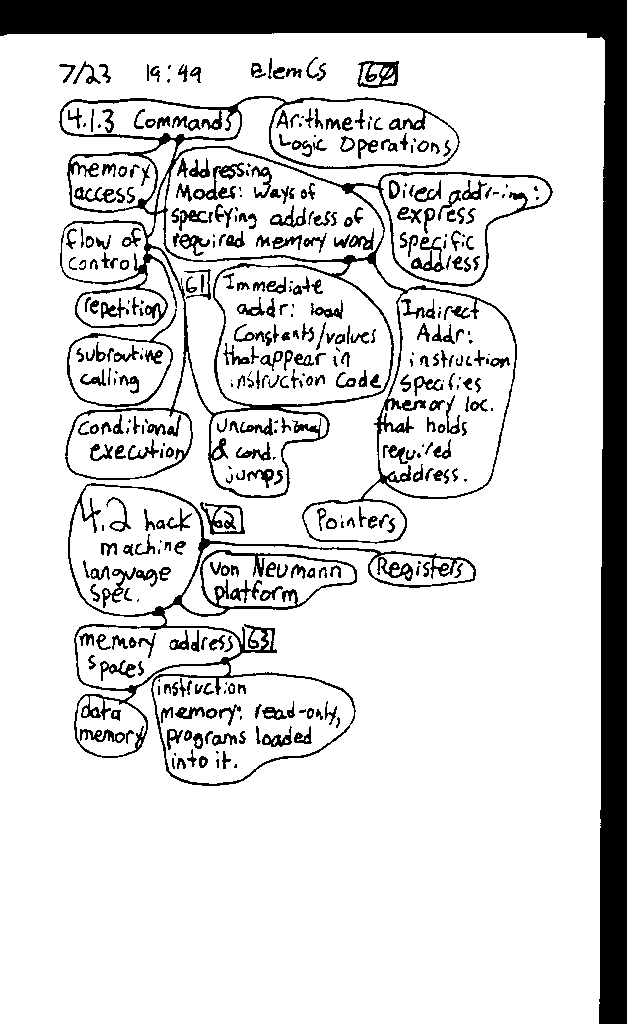 7/23 19:49 ElemCs 60
4.1.3 Commands
Arithmetic and
Logic Operations
memory
access
Addressing
Modes: Ways of
specifying address of
required memory word
Direct addr-ing:
express
specific
address
flow of
control
61
Immediate
addr: load
Constants/values
that appear in
instruction Code
Indirect
Addr:
instruction
specifies
memory loc.
that holds
required
address.
repetition
subroutine
calling
conditional
execution
unconditional
& cond.
jumps
Pointers
4.2 hack
machine
language
spec.
62
von Neumann
platform
Registers
memory address
spaces
63
data
memory
instruction
memory: read-only,
programs loaded
into it.